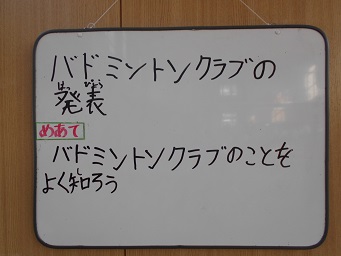 バドミントンクラブの
発表
めあて
バドミントンクラブのことを
よく知ろう